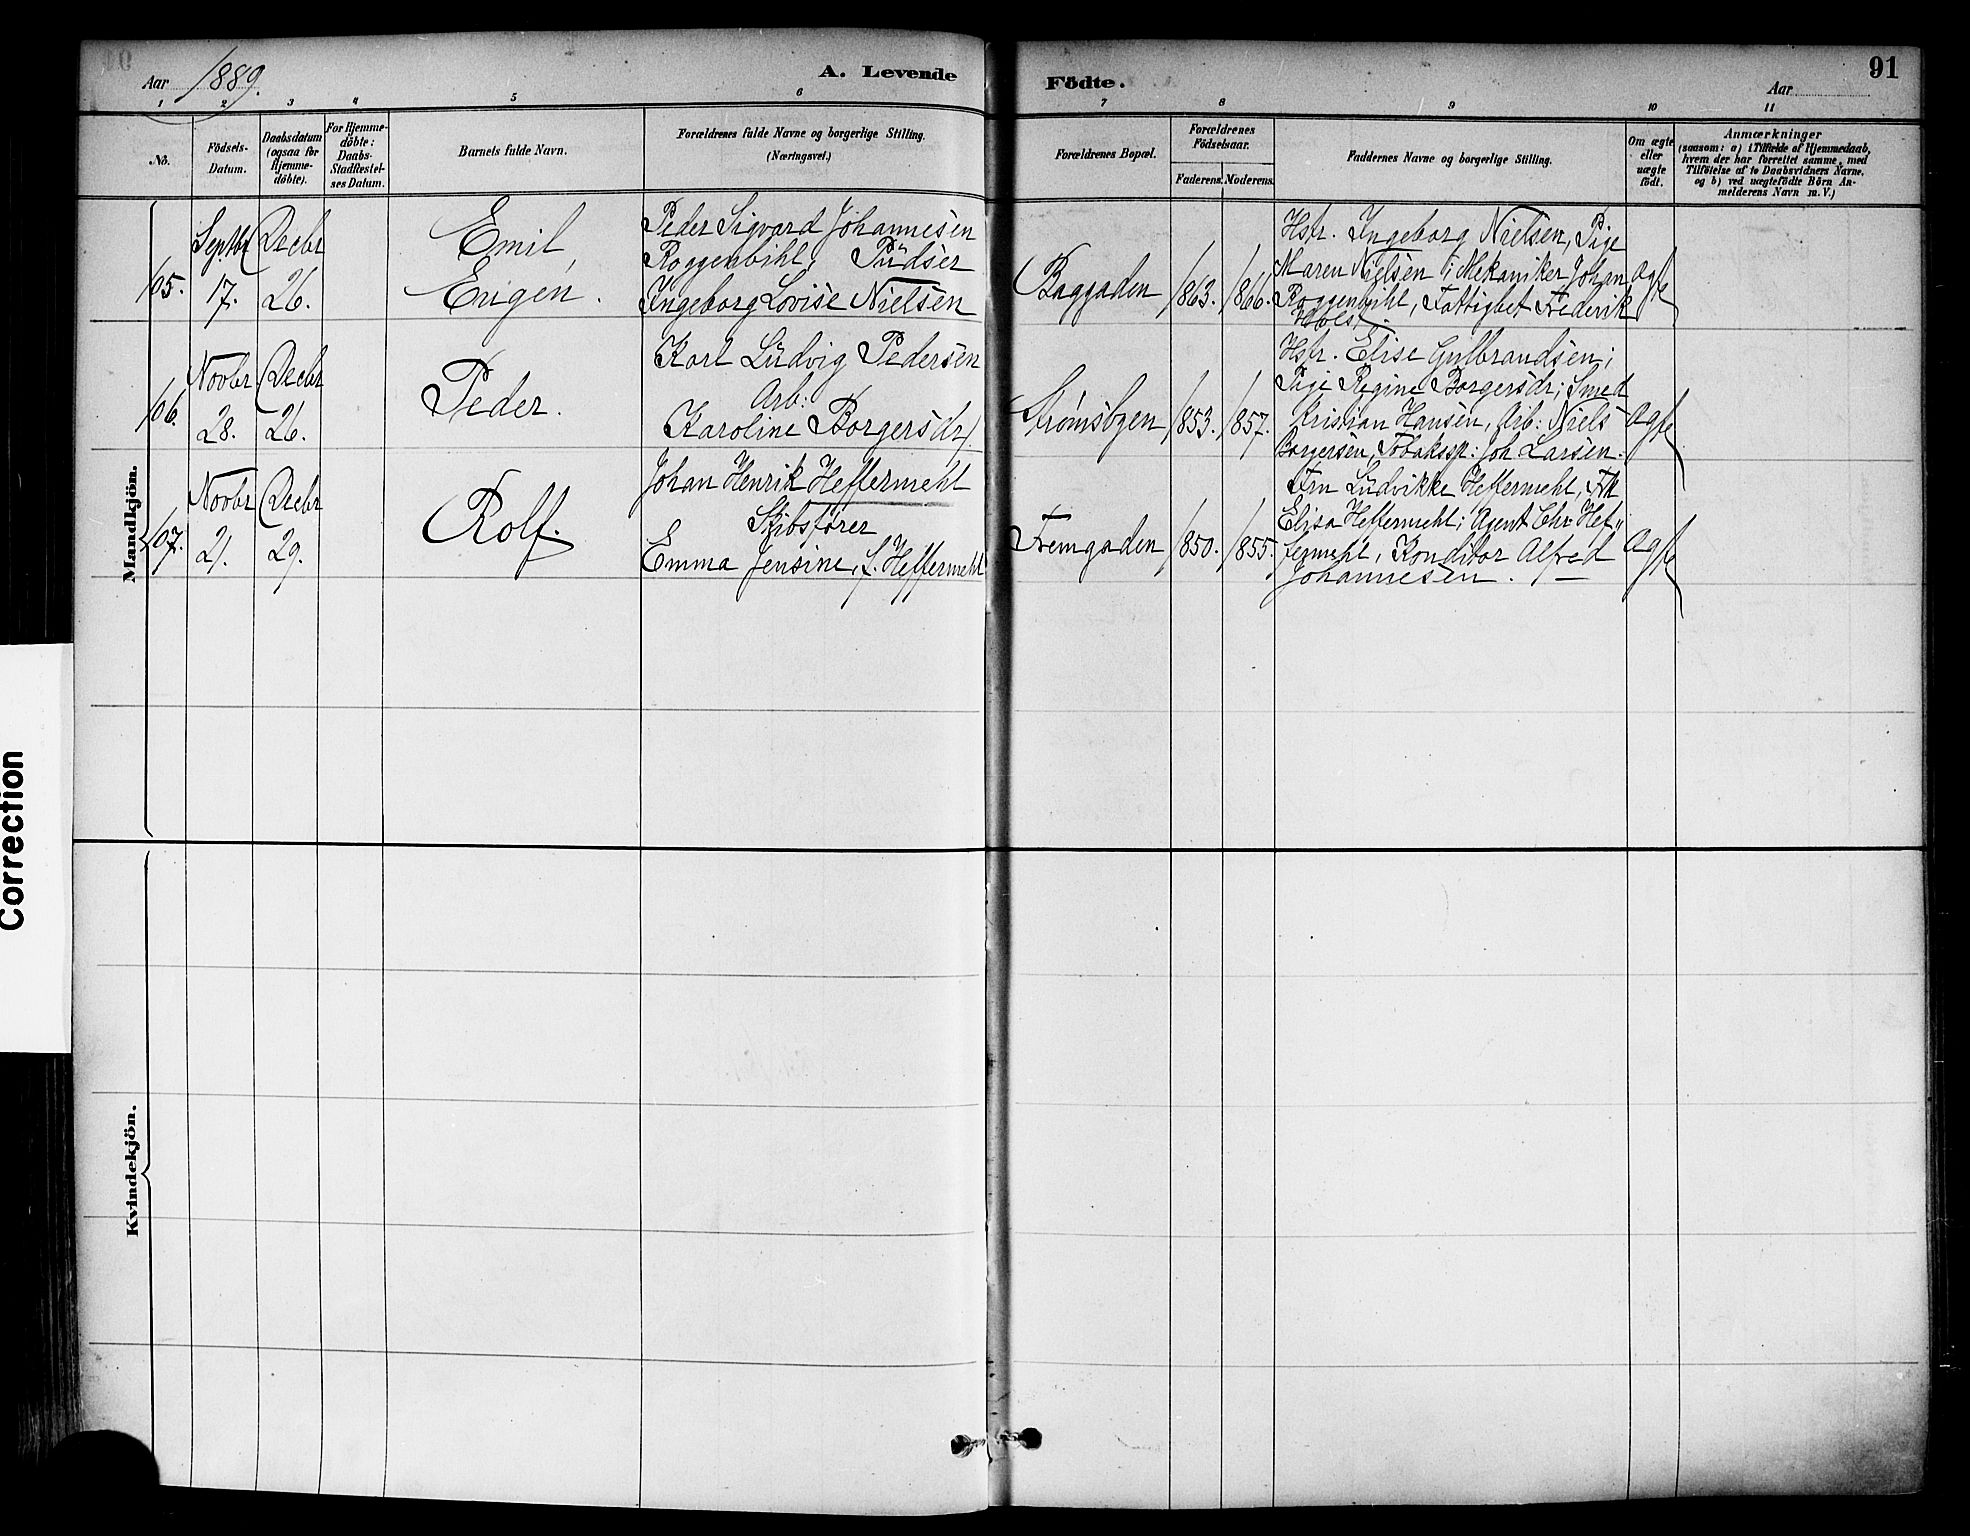 Aar 1889.
A. Levende
Födte.
Aar
91
1 2 3 4 5 6 7 8 9 10 11
No.
Födsels-
Datum.
Daabsdatum
(ogsaa for
Hjemme-
döbte).
For Hjemme-
döbte:
Daabs-
Stadfæstel-
ses Datum.
Barnets fulde Navn.
Forældrenes fulde Navne og borgerlige Stilling.
(Næringsvei.)
Forældrenes Bopæl.
Forældrenes
Födselsaar.
Faderens. Moderens.
Faddernes Navne og borgerlige Stilling.
Om ægte
eller
uægte
födt.
Anmærkninger
(saasom: a) i Tilfælde af Hjemmedaab,
hvem der har forrettet samme, med
Tilföielse af to Daabsvidners Navne,
og b) ved uægtefödte Börn An-
melderens Navn m. V.)
Mandkjön.
105.
Septbr
17.
Decbr
26.
Emil
Eugen.
Peder Sigvard Johannesen
Roggenbihl, Pudser
Ingeborg Lovise Nielsen
Baggaden
1863.
1866.
Hstr. Ingeborg Nielsen, Pige
Maren Nielsen; Mekaniker Johan
Roggenbihl, Fattigbet Frederik
Holst.
Ægte
106.
Novbr
28.
Decbr
26.
Peder.
Karl Ludvig Pedersen
Arb:
Karoline Borgersdr.
Strømsbyen
1853.
1857.
Hstr. Elise Gulbrandsen;
Pige Regine Borgersdr; Smed
Kristian Hansen, Arb: Niels
Borgersen, Tobakssp: Joh Larsen.
Ægte
107.
Novbr
21.
Decbr
29.
Rolf.
Johan Henrik Heffermehl
Skibsfører
Emma Jensine, f. Heffermehl
Fremgaden
1850.
1855.
Fru Ludvikke Heffermehl, Frk
Elisa Heffermehl; Agent Chr Hef„
fermehl, Konditor Alfred
Johannesen. —
Ægte
Kvindekjön.
Correction